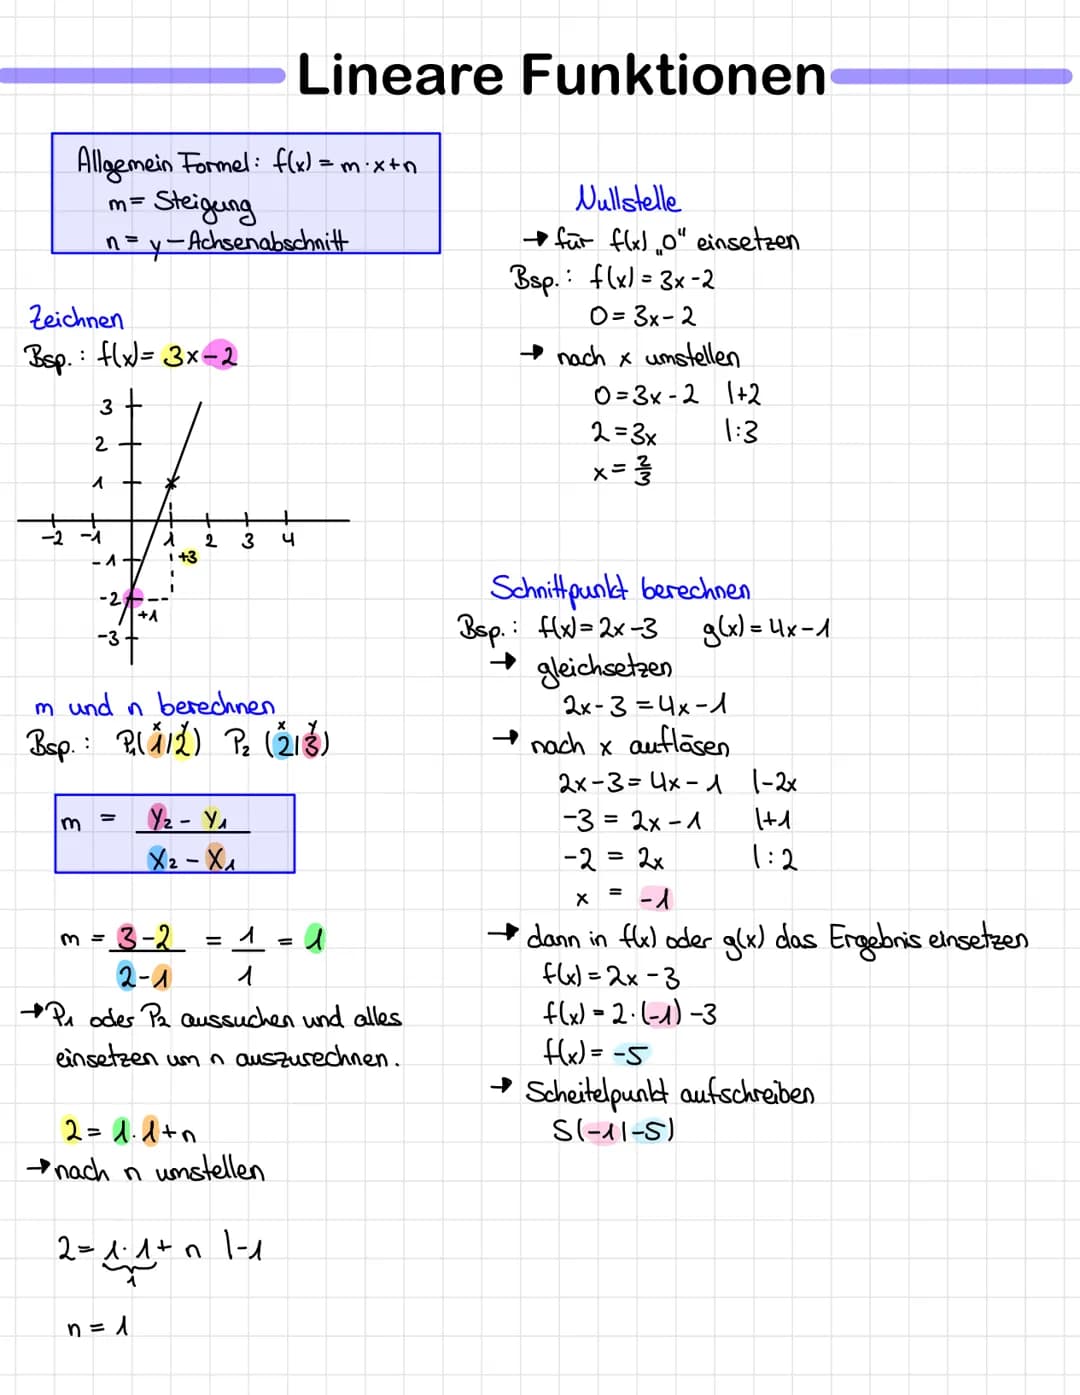 Lineare Funktionen
Allgemein Formel: f(x) = m·x+n
m= Steigung
n= y-Achsenabschnitt
Zeichnen
Bsp.: f(x)= 3x-2
3
2
1
-2 -1 1 2 3 4
-1
+3
-2
+1
-3
m und n berechnen
x y x y
Bsp.: P₁(1|2) P₂ (2|3)
m = y₂ - y₁ / x₂ - x₁
m = 3-2 / 2-1 = 1/1 = 1
→P₁ oder P₂ aussuchen und alles
einsetzen um n auszurechnen.
2= 1·1+n
→nach n umstellen
2= 1·1+ n |-1
1
n = 1
Nullstelle
→ für f(x) „0" einsetzen
Bsp.: f(x) = 3x-2
0= 3x-2
→ nach x umstellen
0=3x-2 |+2
2=3x |:3
x= 2/3
Schnittpunkt berechnen
Bsp.: f(x)= 2x-3 g(x) = 4x-1
→ gleichsetzen
2x-3 =4x-1
→ nach x auflösen
2x-3=4x-1 |-2x
-3 = 2x-1 |+1
-2 = 2x |:2
x = -1
→ dann in f(x) oder g(x) das Ergebnis einsetzen
f(x) = 2x-3
f(x) = 2·(-1) -3
f(x)= -5
→ Scheitelpunkt aufschreiben
S(-1|-5)